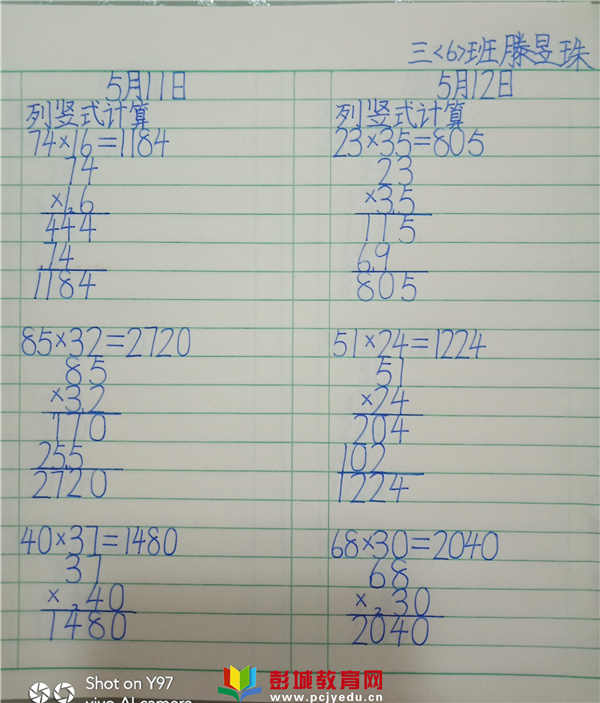 三<6>班滕昱珠
5月11日
列竖式计算
74×16=1184
74
×16
444
74
1184
85×32=2720
85
×32
170
255
2720
40×37=1480
37
×40
1480
5月12日
列竖式计算
23×35=805
23
×35
115
69
805
51×24=1224
51
×24
204
102
1224
68×30=2040
68
×30
2040
Shot on Y97
vivo AI camera
彭城教育网
www.pcjyedu.cn